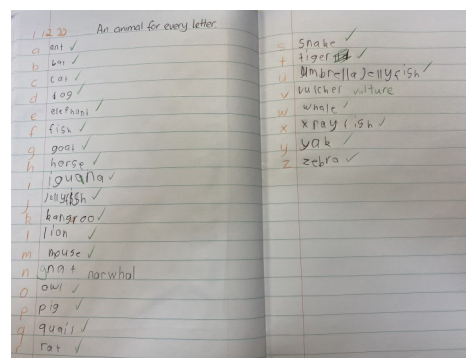 1 12 20 An animal for every letter
a ant ✓
b bat ✓
c cat ✓
d dog ✓
e elephant ✓
f fish ✓
g goat ✓
h horse ✓
i iguana ✓
j Jellyfish ✓
k kangroo ✓
l lion ✓
m mouse ✓
n gnat narwhal
o owl ✓
p pig ✓
q quail ✓
r rat ✓
s snake ✓
t tiger ✓
u umbrella Jellyfish ✓
v vulcher vulture
w whale ✓
x xray fish ✓
y yak ✓
z zebra ✓